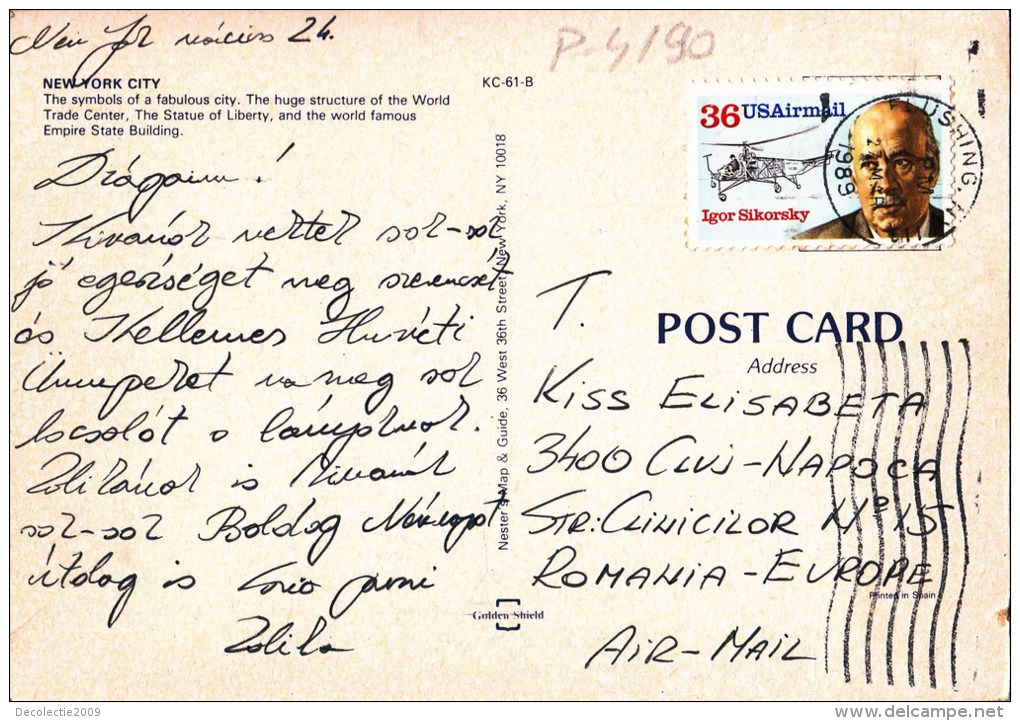 New York március 24.
P-4/90
NEW YORK CITY
The symbols of a fabulous city. The huge structure of the World
Trade Center, The Statue of Liberty, and the world famous
Empire State Building.
KC-61-B
36 USAirmail
Igor Sikorsky
FLUSHING
PM
1989
Drágáim!
Kivánok nektek sok-sok
jó egészséget meg szerencsét
és Kellemes Húsvéti
Ünnepeket na meg sok
locsolót a lányoknak.
Zolikának is Kivánok
sok-sok Boldog Névnapot
útólag is
Zolika
Nester's Map & Guide, 36 West 36th Street, New York, NY 10018
Golden Shield
T.
POST CARD
Address
KISS ELISABETA
3400 CLUJ-NAPOCA
STR: CLINICILOR Nº 15
ROMANIA-EUROPE
Printed in Spain
AIR-MAIL
Decolectie2009